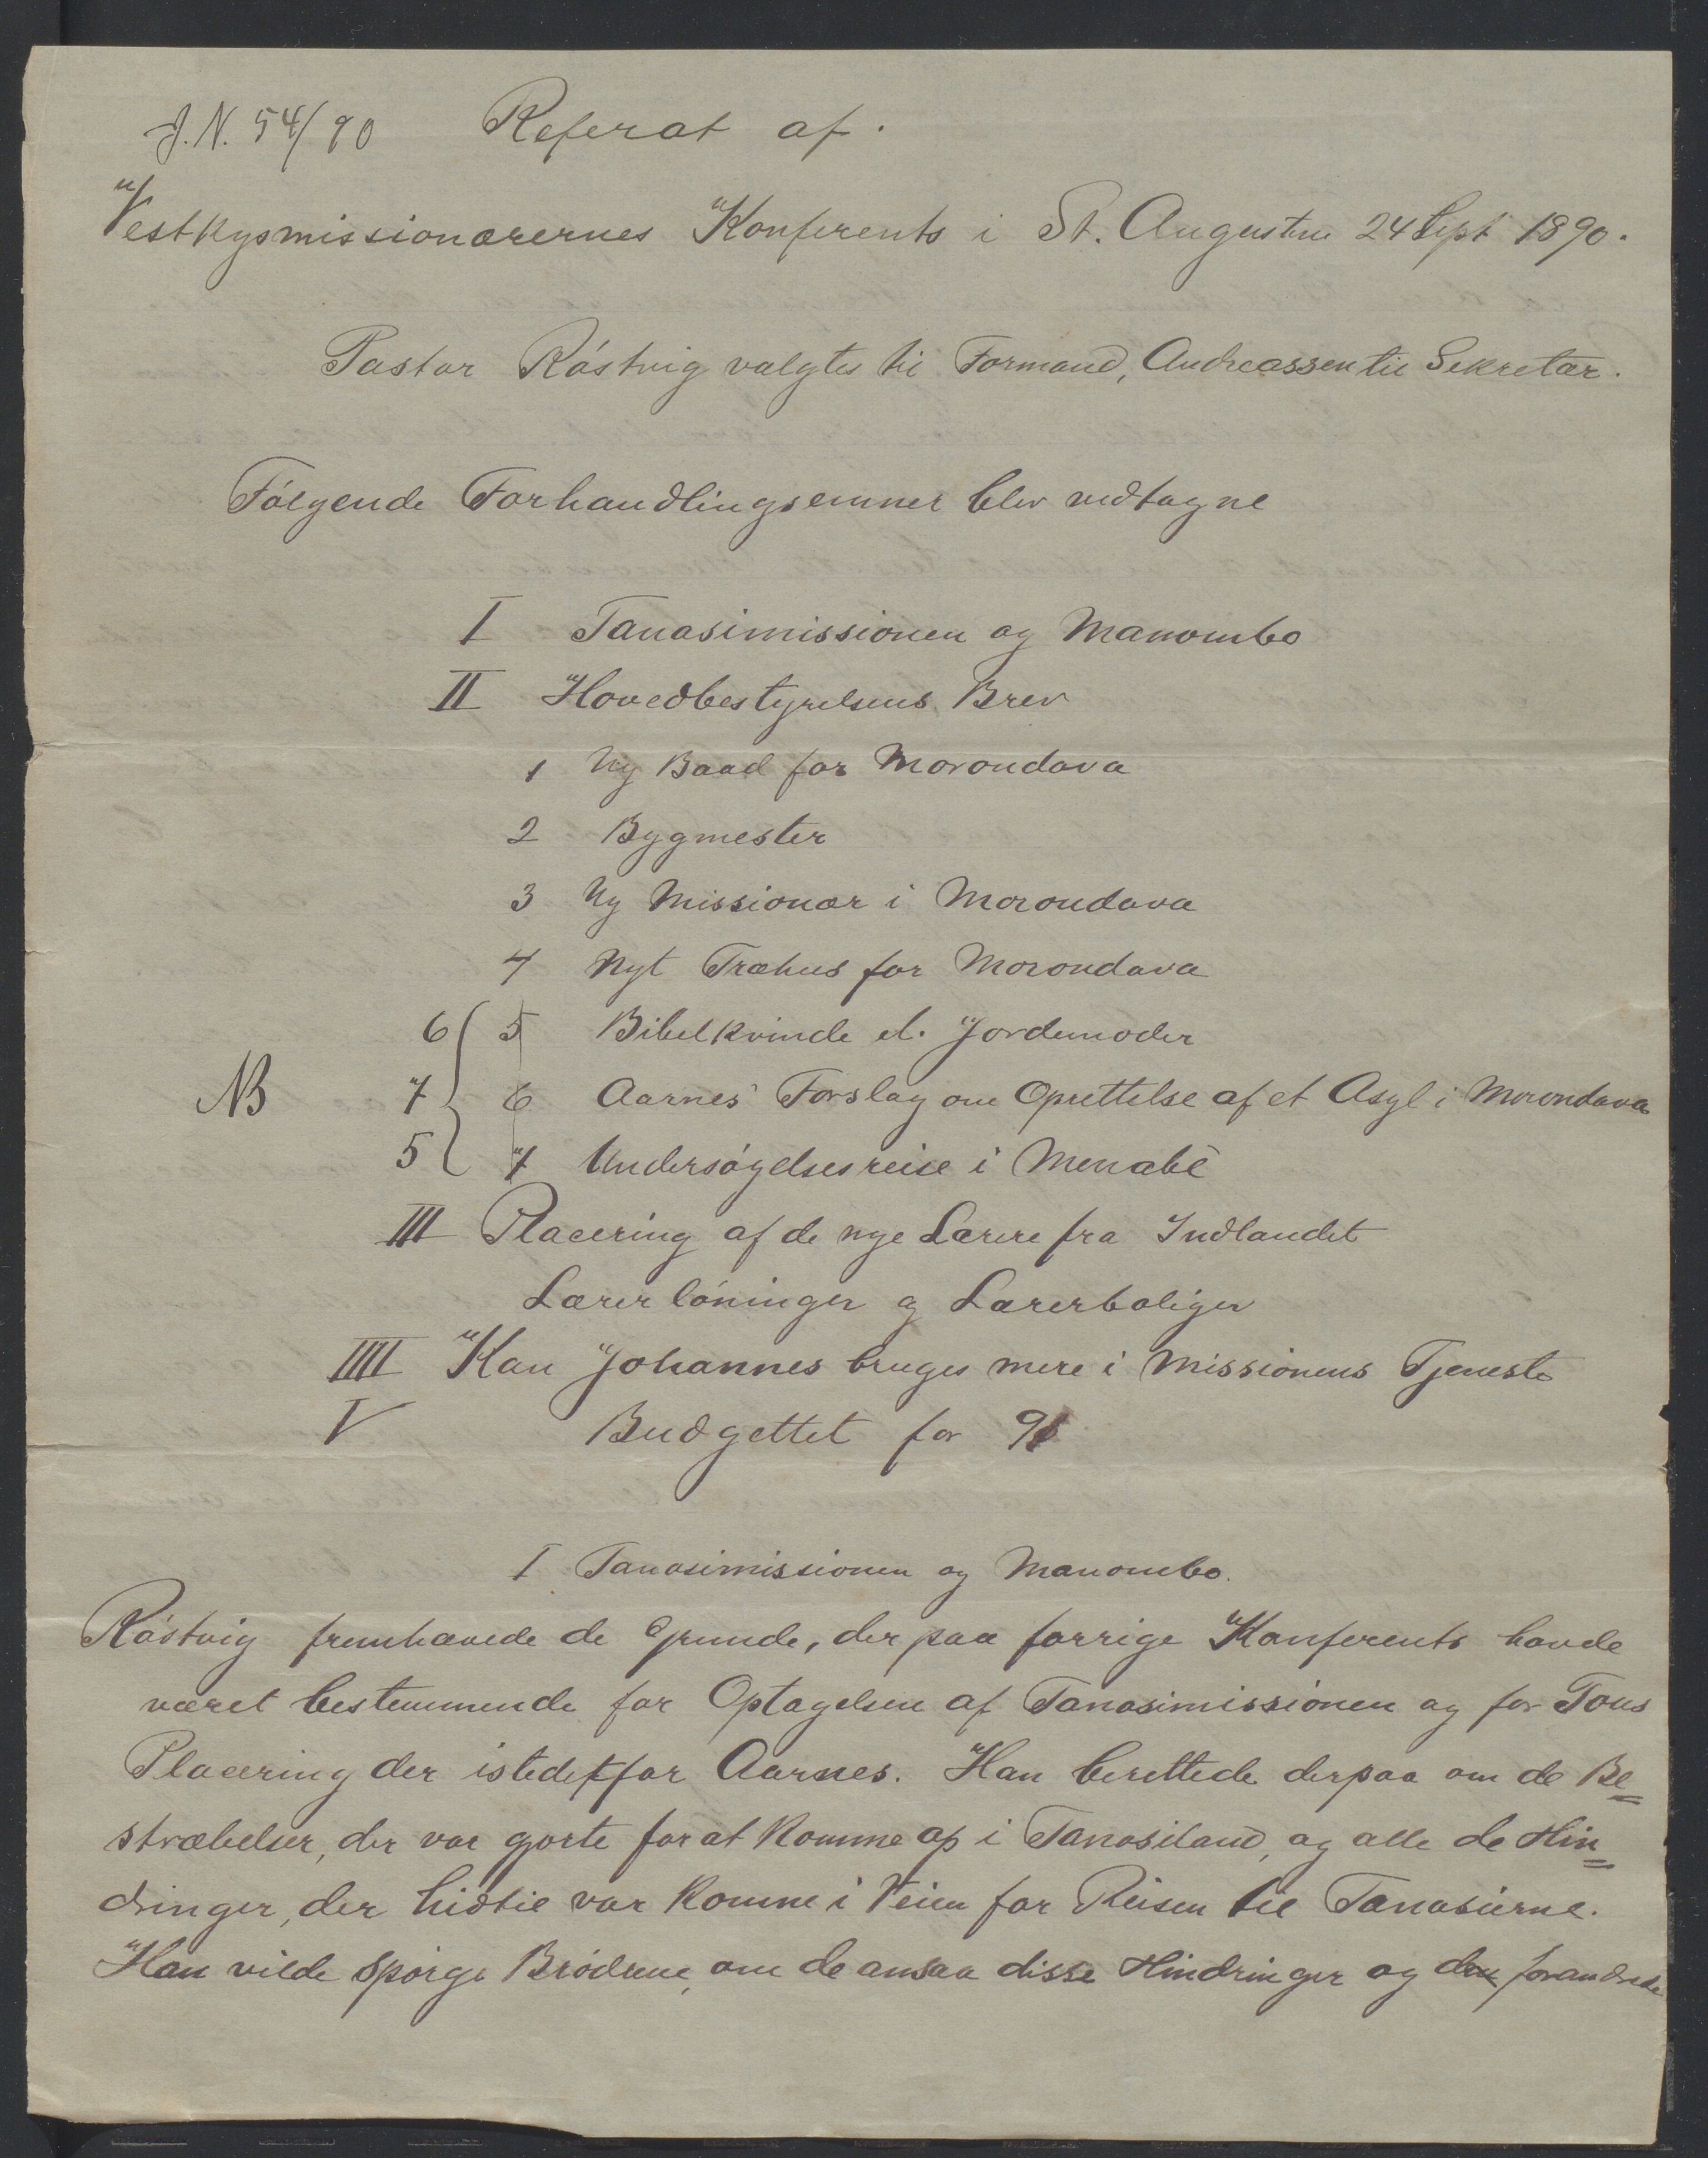 J.N. 54/90 Referat af.
Vestkysmissionærernes Konferents i St. Augustin 24 Sept 1890.
Pastor Röstvig valgtes til Formand, Andreassen til Sekretær.
Fölgende Forhandlingsemner blev vedtagne
I Tanosimissionen og Manombo
II Hovedbestyrelsens Brev
1 Ny Baad for Morondava
2 Bygmester
3 Ny Missionær i Morondava
4 Nyt Træhus for Morondava
6 5 Bibelkvinde el. Jordemoder
NB 7 6 Aarnes' Forslag om Oprettelse af et Asyl i Morondava
5 7 Undersögelsesreise i Menabè
III Placering af de nye Lærere fra Indlandet
Lærerlöninger og Lærerboliger
IIII Kan Johannes bruges mere i Missionens Tjeneste
V Budgettet for 91
I Tanosimissionen og Manombo.
Röstvig fremhævede de Grunde, der paa forrige Konferents havde
været bestemmende for Optagelsen af Tanosimissionen og for Tous
Placering der istedetfor Aarnes. Han berettede derpaa om de Be=
stræbelser, der var gjorte for at komme op i Tanosiland, og alle de Hin=
dringer, der hidtil var komne i Veien for Reisen til Tanosierne.
Han vilde spörge Brödrene, om de ansaa disse Hindringer og den forandrede